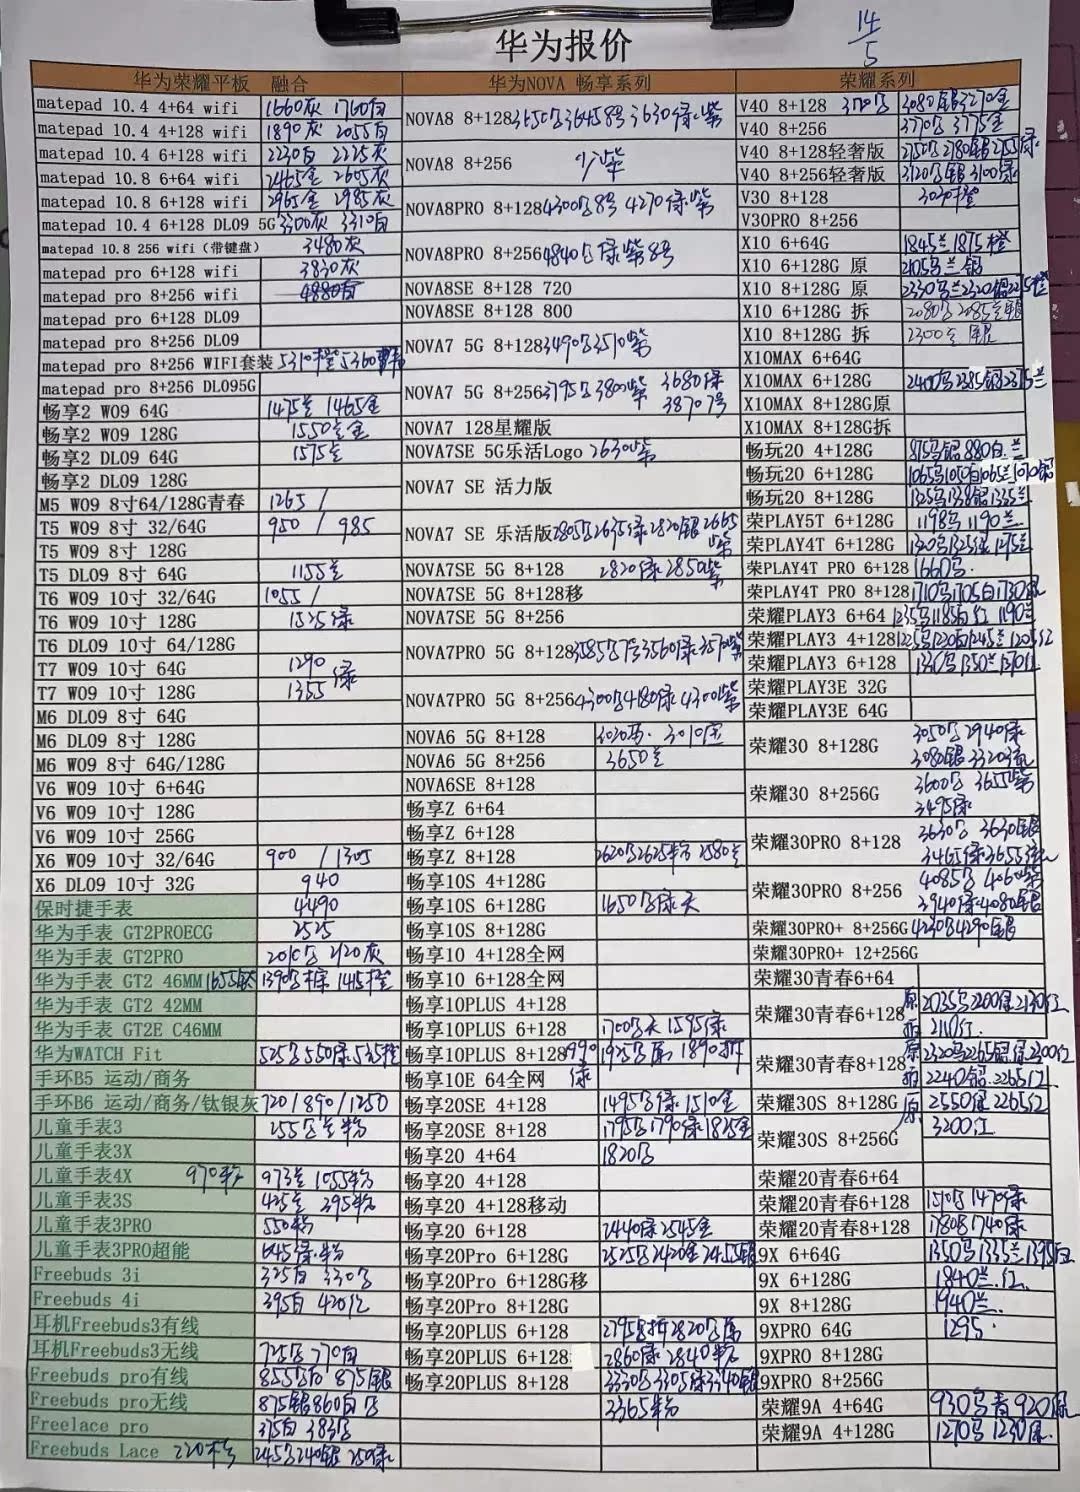 华为报价
14/5
华为荣耀平板 融合
matepad 10.4 4+64 wifi 1660灰 1760白
matepad 10.4 4+128 wifi 1890灰 2055白
matepad 10.4 6+128 wifi 2230白 2225灰
matepad 10.8 6+64 wifi 2465金 2605灰
matepad 10.8 6+128 wifi 2965金 2985灰
matepad 10.4 6+128 DL09 5G 3300灰 3310白
matepad 10.8 256 wifi（带键盘） 3480灰
matepad pro 6+128 wifi 3830灰
matepad pro 8+256 wifi 4880白
matepad pro 6+128 DL09
matepad pro 8+256 DL09
matepad pro 8+256 WIFI套装 5310橙 5360
matepad pro 8+256 DL095G
畅享2 W09 64G 1475兰 1465金
畅享2 W09 128G 1550兰金
畅享2 DL09 64G 1575兰
畅享2 DL09 128G
M5 W09 8寸64/128G青春 1265 /
T5 W09 8寸 32/64G 950 / 985
T5 W09 8寸 128G
T5 DL09 8寸 64G 1155兰
T6 W09 10寸 32/64G 1055 /
T6 W09 10寸 128G 1525绿
T6 DL09 10寸 64/128G
T7 W09 10寸 64G 1290
T7 W09 10寸 128G 1355 绿
M6 DL09 8寸 64G
M6 DL09 8寸 128G
M6 W09 8寸 64G/128G
V6 W09 10寸 6+64G
V6 W09 10寸 128G
V6 W09 10寸 256G
X6 W09 10寸 32/64G 900 / 1305
X6 DL09 10寸 32G 940
保时捷手表 4490
华为手表 GT2PROECG 2525
华为手表 GT2PRO 灰
华为手表 GT2 46MM
华为手表 GT2 42MM
华为手表 GT2E C46MM
华为WATCH Fit 525 550绿 535橙
手环B5 运动/商务
手环B6 运动/商务/钛银灰 720/890/1250
儿童手表3 255
儿童手表3X
儿童手表4X 970粉 973兰 1055粉
儿童手表3S 425兰 395粉
儿童手表3PRO 550粉
儿童手表3PRO超能 645绿.粉
Freebuds 3i 325白 330
Freebuds 4i 395白 420红
耳机Freebuds3有线
耳机Freebuds3无线 725 770白
Freebuds pro有线 855 白 875银
Freebuds pro无线 875银860白
Freelace pro 375白 383
Freebuds Lace 220 245 240银 250绿
华为NOVA 畅享系列
NOVA8 8+128 3650 3645 8号 3630绿.紫
NOVA8 8+256 紫
NOVA8PRO 8+128 4300 8号 4270绿.紫
NOVA8PRO 8+256 4840 绿紫8号
NOVA8SE 8+128 720
NOVA8SE 8+128 800
NOVA7 5G 8+128 3490 3510紫
NOVA7 5G 8+256 3795 3800紫 3680绿 3870 7号
NOVA7 128星耀版
NOVA7SE 5G乐活Logo 2630紫
NOVA7 SE 活力版
NOVA7 SE 乐活版 2805 2635绿2820银2665紫
NOVA7SE 5G 8+128 2820绿 2850紫
NOVA7SE 5G 8+128移
NOVA7SE 5G 8+256
NOVA7PRO 5G 8+128 3585 3560绿 3570紫
NOVA7PRO 5G 8+256 4300 4180绿 4300紫
NOVA6 5G 8+128 3020 3010
NOVA6 5G 8+256 3650兰
NOVA6SE 8+128
畅享Z 6+64
畅享Z 6+128
畅享Z 8+128 2620 2625粉 2580兰
畅享10S 4+128G
畅享10S 6+128G 1650 绿 天
畅享10S 8+128G
畅享10 4+128全网
畅享10 6+128全网
畅享10PLUS 4+128
畅享10PLUS 6+128 1700 天 1595绿
畅享10PLUS 8+128 1925 1890
畅享10E 64全网 990绿
畅享20SE 4+128 1495 绿 1510金
畅享20SE 8+128 1795 1790绿 1825金
畅享20 4+64 1820
畅享20 4+128
畅享20 4+128移动
畅享20 6+128 2440绿 2545金
畅享20Pro 6+128G 2525 2420金 2455银
畅享20Pro 6+128G移
畅享20Pro 8+128G
畅享20PLUS 6+128 2795 2820
畅享20PLUS 6+128 2860绿 2840粉
畅享20PLUS 8+128 3330 3305绿 3340银
3365粉
荣耀系列
V40 8+128 3080银3270金
V40 8+256 3770 3775金
V40 8+128轻奢版 2150 2180银 2155绿
V40 8+256轻奢版 3120 银 3100绿
V30 8+128 3020橙
V30PRO 8+256
X10 6+64G 1845兰1875橙
X10 6+128G 原 2105 兰 银
X10 8+128G 原 2330 兰2320银
X10 6+128G 拆 2080 2085兰银
X10 8+128G 拆 2300兰 银
X10MAX 6+64G
X10MAX 6+128G 2400 2385银 2375兰
X10MAX 8+128G原
X10MAX 8+128G拆
畅玩20 4+128G 875 银 880白.兰
畅玩20 6+128G 1065 1050白1065兰1070银
畅玩20 8+128G 1325 1338银 1335兰
荣PLAY5T 6+128G 1198 1190兰
荣PLAY4T 6+128G 1320 1325绿 1275兰
荣PLAY4T PRO 6+128 1660
荣PLAY4T PRO 8+128 1710 1705白 1730绿
荣耀PLAY3 6+64 1235 1185白红 1190兰
荣耀PLAY3 4+128 1225 1220白1245兰 1205红
荣耀PLAY3 6+128 1360 1350兰 1370红
荣耀PLAY3E 32G
荣耀PLAY3E 64G
荣耀30 8+128G 3050 2940绿
3080银 3320
荣耀30 8+256G 3600 3655紫
3495绿
荣耀30PRO 8+128 3630 3630银
3465绿3655
荣耀30PRO 8+256 4085 406 紫
3940绿.4080银
荣耀30PRO+ 8+256G 4230 4290银
荣耀30PRO+ 12+256G
荣耀30青春6+64
荣耀30青春6+128 原 2035 2200绿 2130红
2110红.
荣耀30青春8+128 原 2320 2265银.绿 2300红
2240银.2265红
荣耀30S 8+128G 原 2550绿 2265红
荣耀30S 8+256G 3200红
荣耀20青春6+64
荣耀20青春6+128 1510 1470绿
荣耀20青春8+128 1780 1740绿
9X 6+64G 1350 1335兰 1395红
9X 6+128G 1840兰.红
9X 8+128G 1940兰.
9XPRO 64G 1295
9XPRO 8+128G
9XPRO 8+256G
荣耀9A 4+64G 930 青 920绿
荣耀9A 4+128G 1270 1230绿.